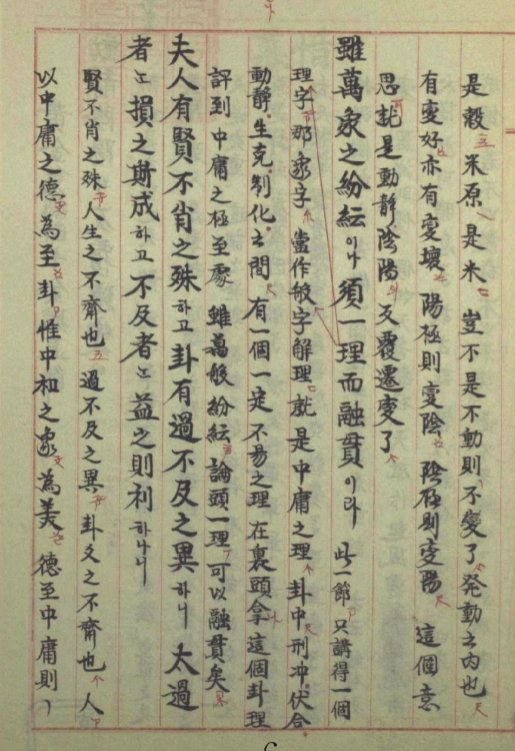 是穀米原是米 豈不是不動則不變了 発動之內也
有變好亦有變壞 陽極則變陰 陰極則變陽 這個意
思就是動靜陰陽 反覆遷變了
雖萬象之紛紜이나 須一理而融貫이라 此一節只講得一個
理字 那象字當作般字解 理就是中庸之理 卦中刑冲伏合
動靜生克制化之間 有一個一定不易之理在裏頭 拿這個卦理
評到中庸之極至處 雖萬般紛紜 論頭一理 可以融貫矣
夫人有賢不肖之殊하고 卦有過不及之異하니 太過
者는 損之斯成하고 不及者는 益之則利하나니
賢不肖之殊 人生之不齊也 過不及之異 卦爻之不齊也 人
以中庸之德為至 卦惟中和之象為美 德至中庸則